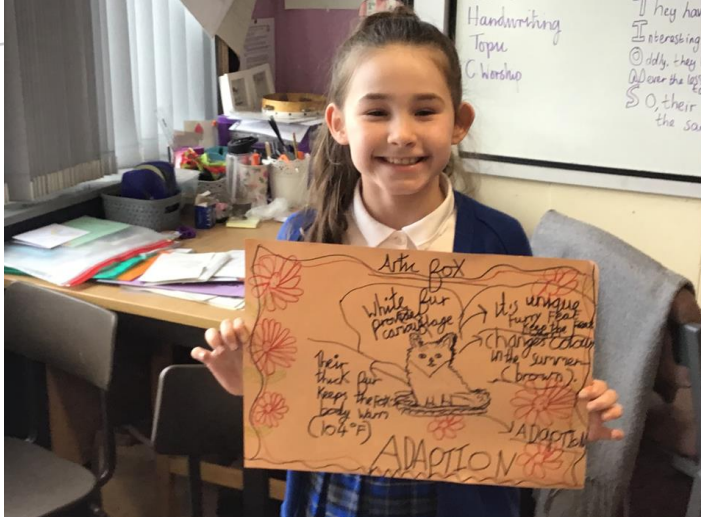 Handwriting
Topic
C Worship
They hav
Interesting
Oddly, they
Over the
SO, their
the sa
Artic fox
White fur
provides
camouflage
It's unique
furry Feat
Keep the heat
changes Colour
in the summer
(brown).
Their
thick fur
Keeps the fox
body warm
(104°F)
ADAPTION
ADAPTION